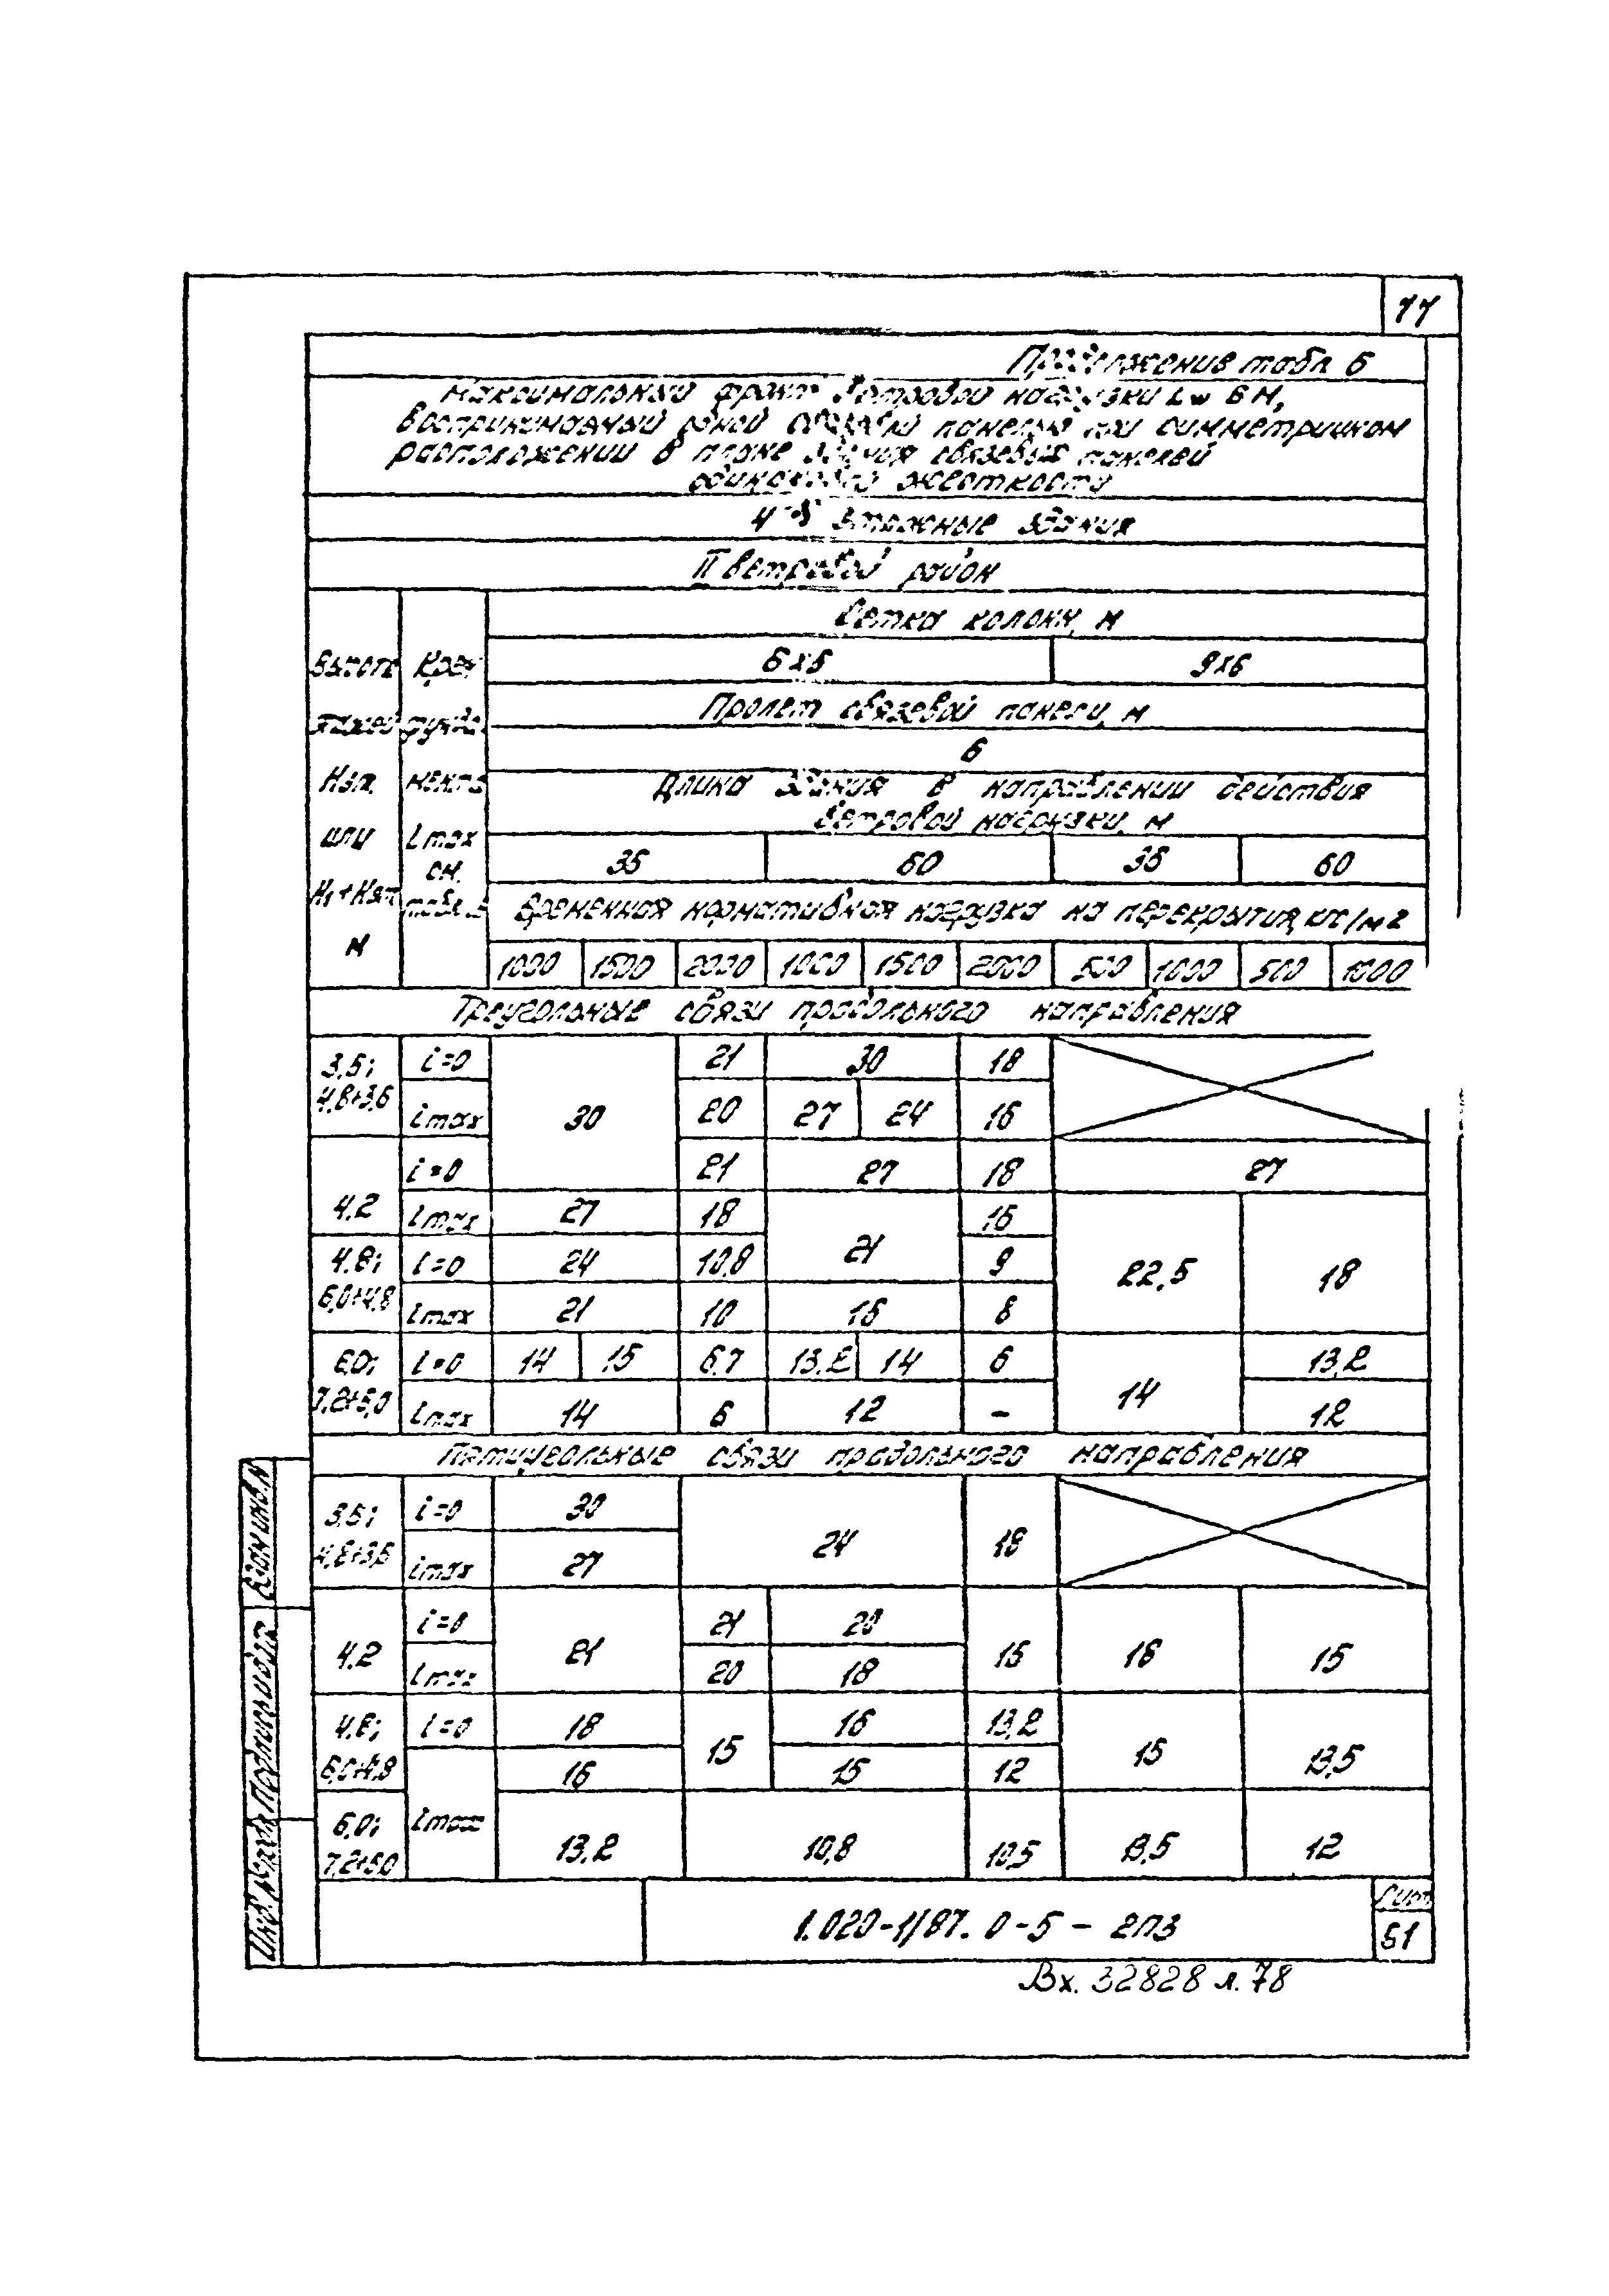 77
Продолжение табл. 6
Максимальный фронт ветровой нагрузки Lw в м,
воспринимаемый одной связевой панелью при симметричном
расположении в плане здания связевых панелей
одинаковой жесткости
этажные здания
II ветровой район
Сетка колонн, м
Высота Крен 6х6 9х6
этажей фунда- Пролет связевой панели, м
6
Нэт. мента Длина здания в направлении действия
ветровой нагрузки, м
или imax
см. 35 60 35 60
H1+Нэт табл. Временная нормативная нагрузка на перекрытия, кгс/м2
м 1000 1500 2000 1000 1500 2000 500 1000 500 1000
Треугольные связи продольного направления
3,6; i=0 21 30 18
4,8+3,6 imax 30 20 27 24 16
i=0 21 27 18 27
4.2 imax 27 18 15
4.8; i=0 24 10,8 21 9 22,5 18
6,0+4,8 imax 21 10 15 8
6,0; i=0 14 15 6,7 13,2 14 6 13,2
7,2+6,0 imax 14 6 12 - 14 12
Пятиугольные связи продольного направления
3,6; i=0 30
4,8+3,6 imax 27 24 18
i=0 21 20
4.2 imax 21 20 18 15 16 15
4.8; i=0 18 16 13,2
6,0+4,8 16 15 15 12 15 13,5
6,0; imax
7,2+6,0 13,2 10,8 10,5 13,5 12
Взам инв. N
Подпись и дата
Инв. № подл
1.020-1/87. 0-5 - 2ПЗ
Лист
51
Вх. 32828 л. 78